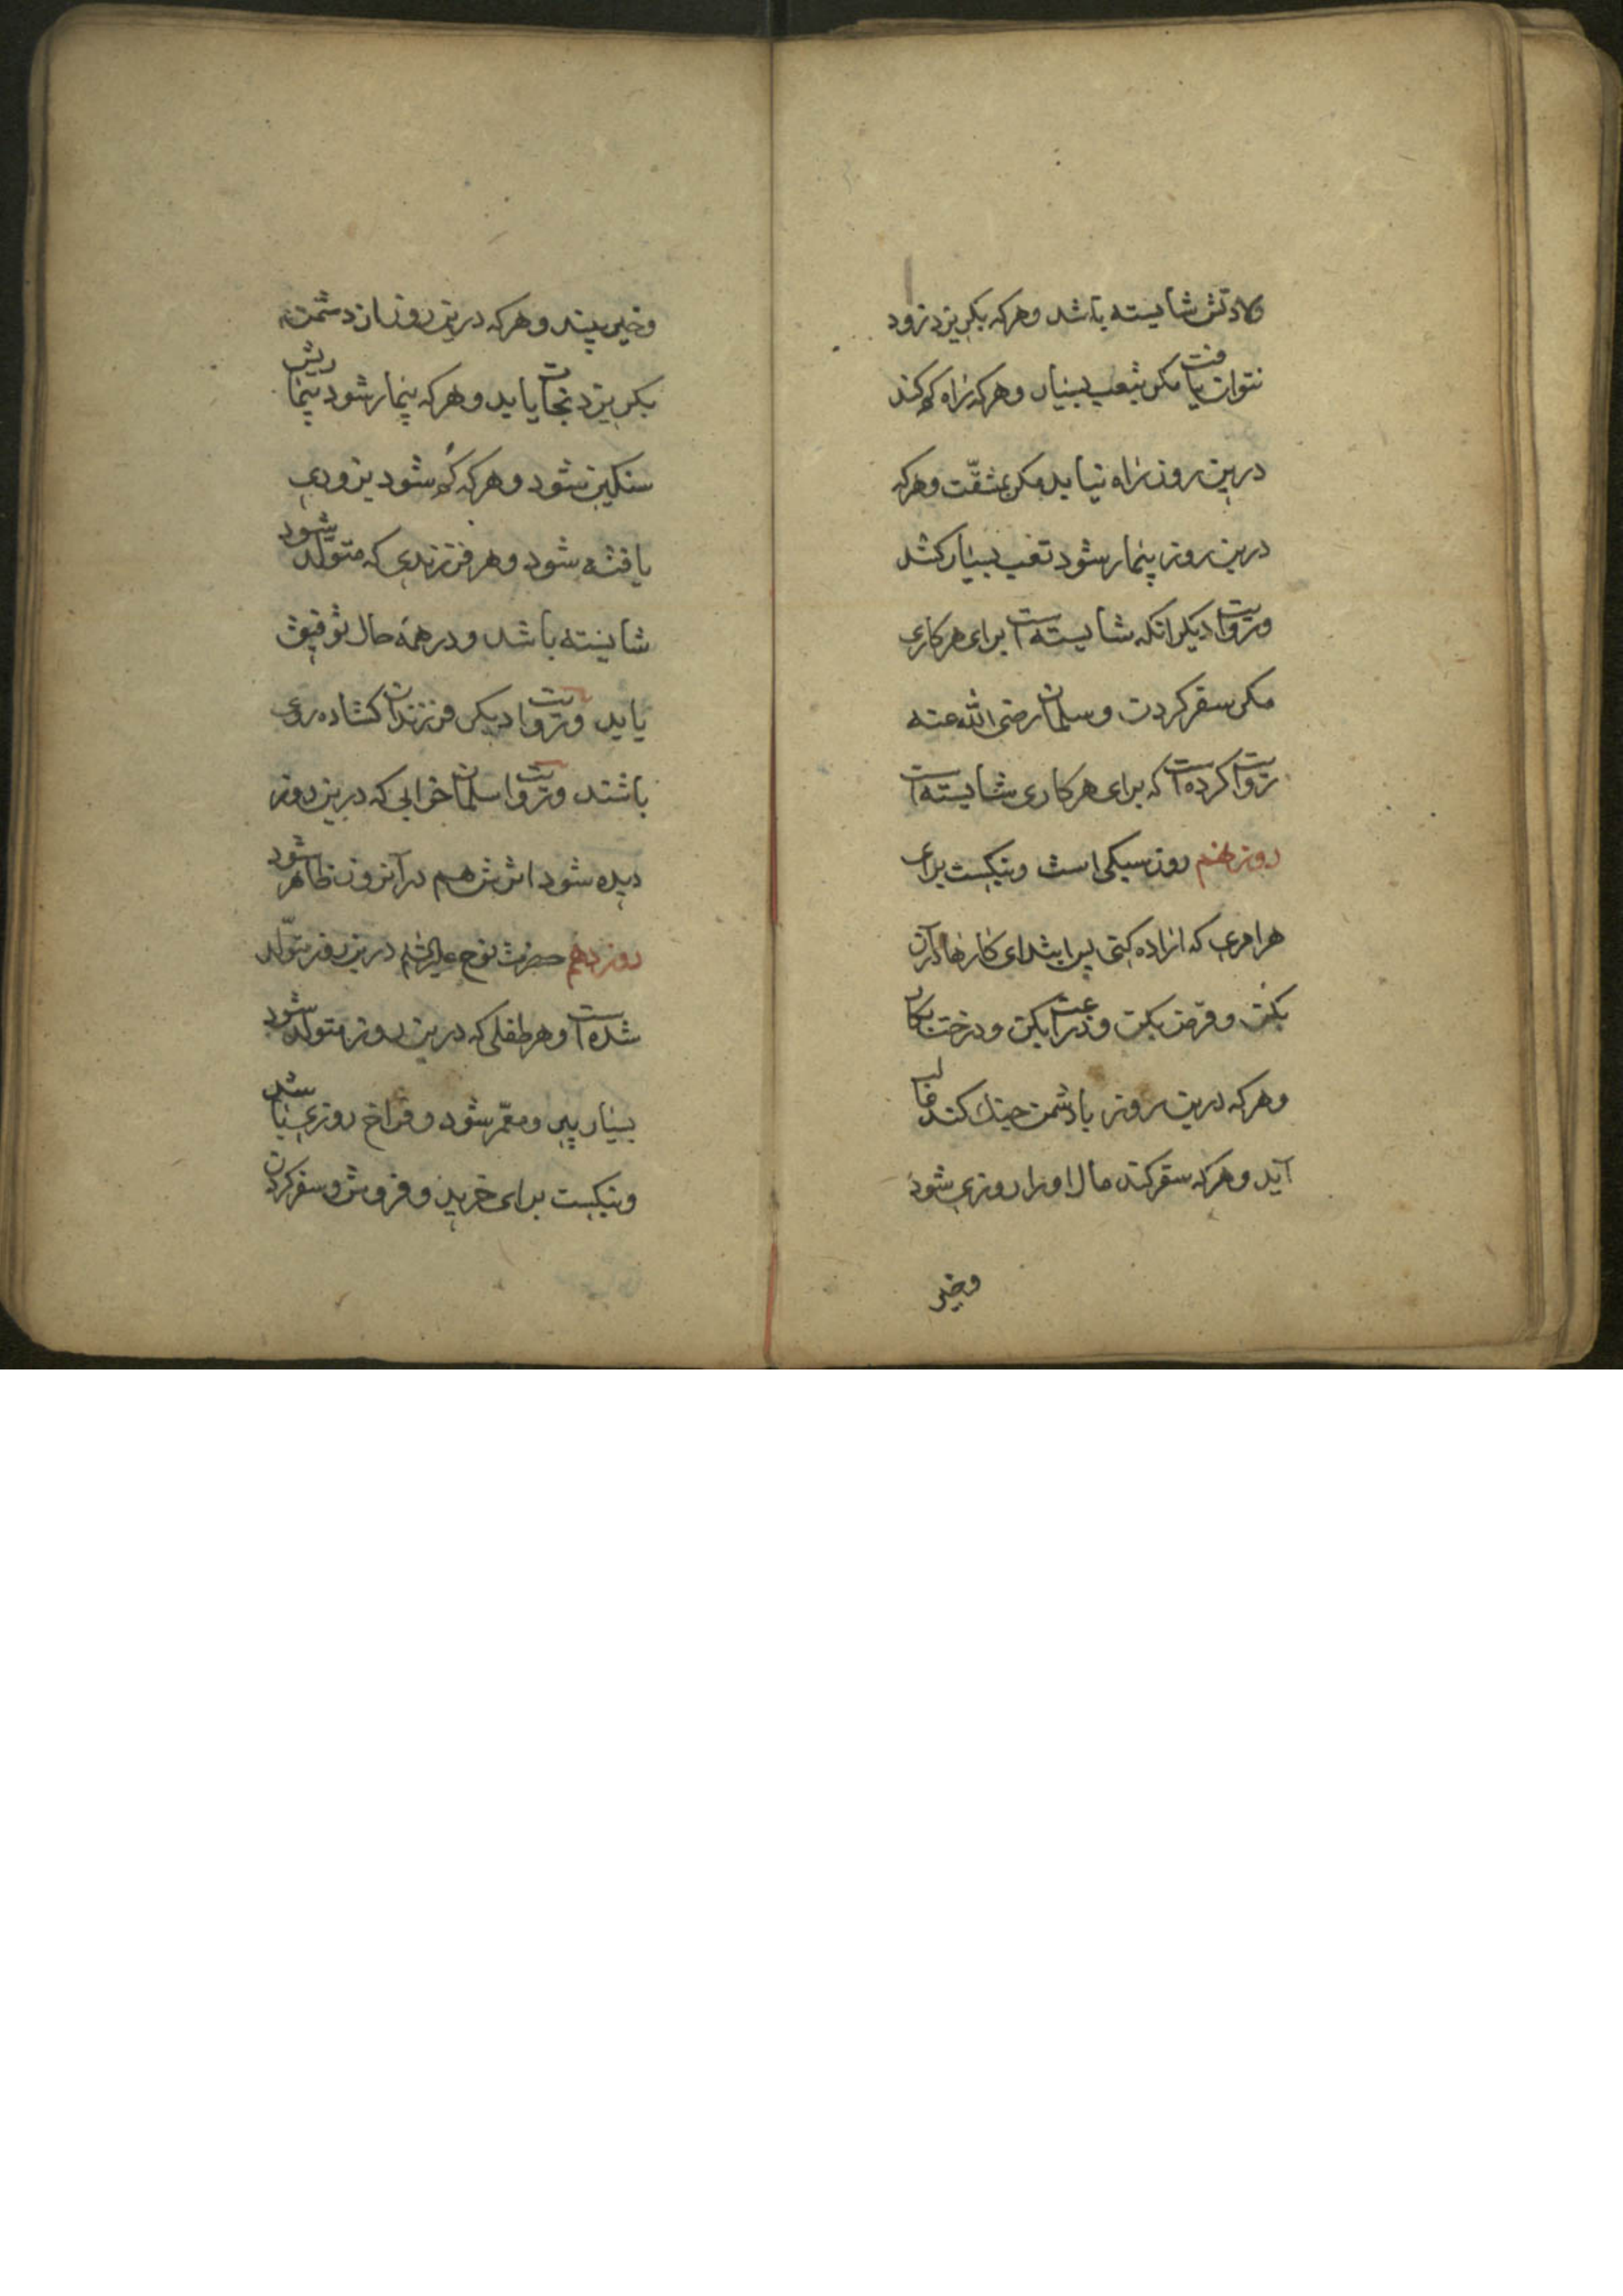 ولادتش شایسته باشد و هرکه بگریزد زود
نتوان یافت مگر بتعب بسیار و هرکه راه گم کند
درین روز راه نیابد مگر بمشقّت و هرکه
درین روز بیمار شود تعب بسیار کشد
و روایت دیگر آنکه شایسته است برای هر کاری
مگر سفر کردن و سلمان رضی الله عنه
روایت کرده است که برای هر کاری شایسته است
روز نهم روز سبکی است و نیکست برای
هر امری که اراده کنی پس ابتدای کارها در آن
بکن و قرض بکن و زراعت بکن و درخت بکار
و هرکه درین روز با دشمن جنک کند غالب
آید و هرکه سفر کند مال او را روزی شود
و خیر
و خیر بیند و هرکه درین روز از دشمن
بگریزد نجات یابد و هرکه بیمار شود بیماریش
سنگین شود و هرکه گم شود بزودی
یافته شود و هر فرزندی که متولّد شود
شایسته باشد و در همه حال توفیق
یابد و روایت دیگر فرزندان گشاده روی
باشند و روایت سلمان خوابی که درین روز
دیده شود اثرش هم در آنروز ظاهر شود
روز دهم حضرت نوح علیه السلام درین روز متولّد
شده است و هر طفلی که درین روز متولّد شود
بسیار پیر و معمّر شود و فراخ روزی باشد
و نیکست برای خرید و فروش و سفر کردن